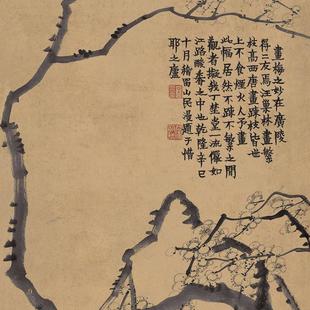 畫梅之妙在廣陵
得二友焉汪巢林畫繁
枝高西唐畫疎枝皆世
上不食煙火人予畫
此幅居然不疎不繁之間
觀者擬我丁野堂一流儼如
江路酸香之中也乾隆辛巳
十月稽留山民漫題于惜
耶之廬